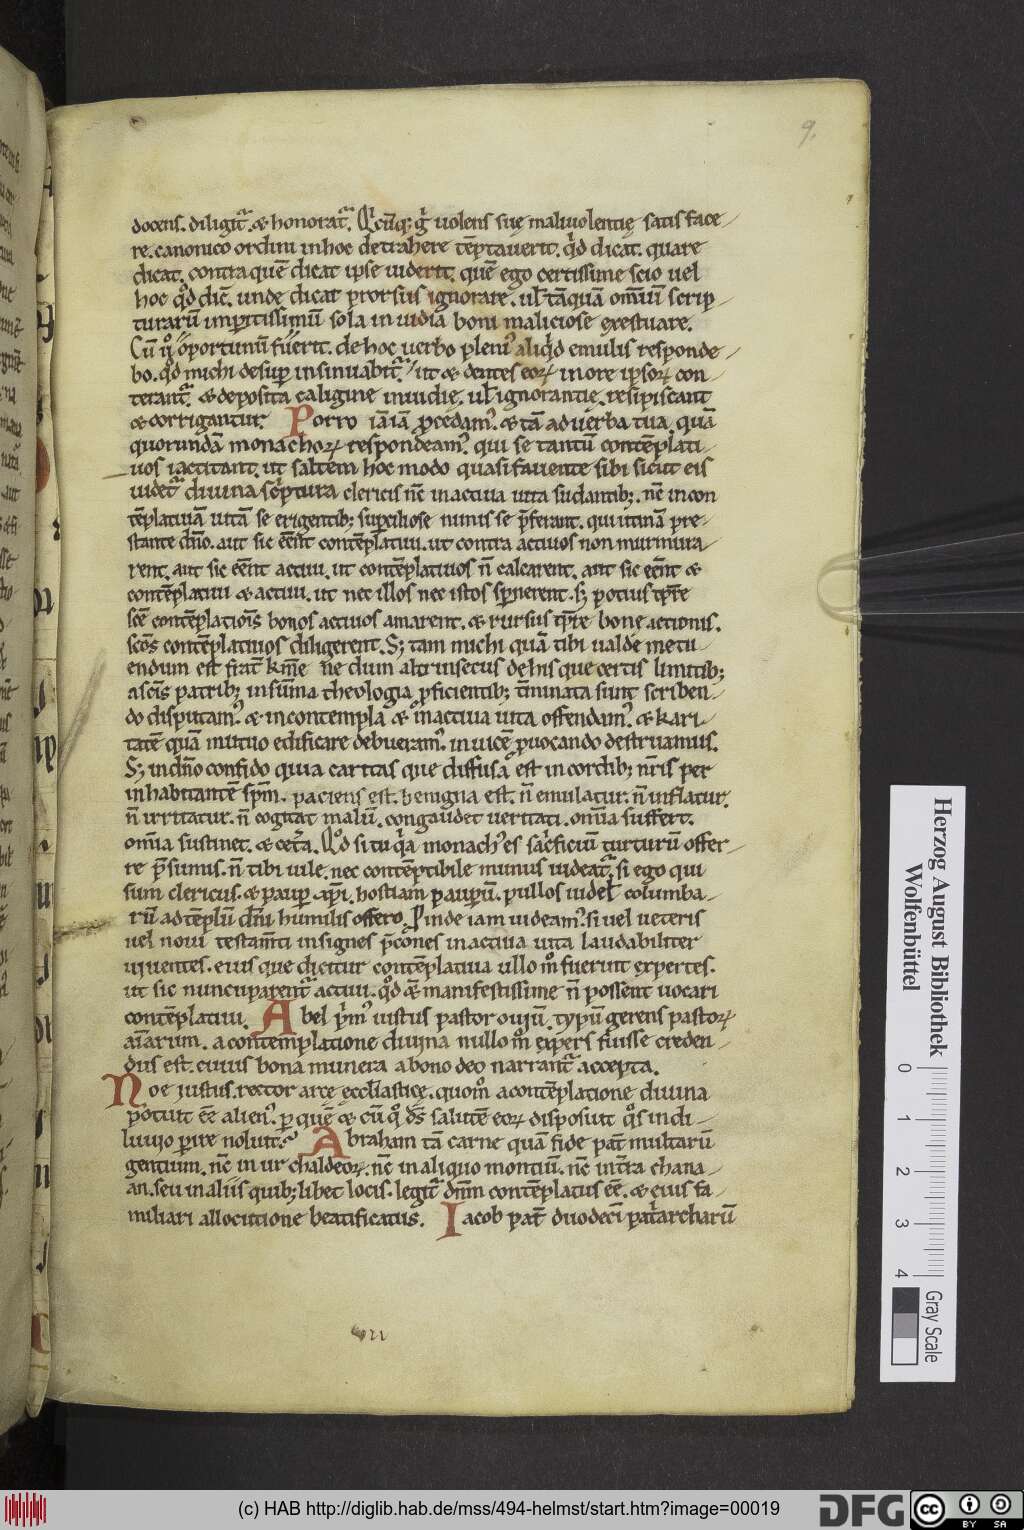 9.
docens. diligit᷑. & honorat᷑. Q̇cūq; g̊ uolens suę maliuolentię satis face-
re. canonico ordini in hoc detrahere tēptauerit. qd̄ dicat. quare
dicat. contra quē dicat ipse uiderit. quē ego certissime scio uel
hoc qd̄ dic̄. unde dicat prorsus ignorare. ul̄ tāquā omīū scrip-
turarū imp̱itissimū sola inuidia boni maliciose exestuare.
Cū ů oportunū fuerit. de hoc uerbo pleni᷒ aliqd̄ emulis responde-
bo. qd̄ michi desup̱ insinuabit᷑. ut & dentes eoꝝ in ore ipsoꝝ con-
terant᷑. & deposita caligine inuidię. ul̄ ignorantię. resipiscant
& corrigantur. Porro iā iā ꝓcedam᷒. & tā ad uerba tua. quā
quorundā monachoꝝ respondeam᷒. qui se tantū contēplati-
uos iactitant. ut saltem hoc modo quasi fauente sibi sicut eis
uidet᷑ diuina scriptura clericis nc̄ in actiua uita sudantib;. nc̄ in con
tēplatiuā uitā se erigentib; sup̱ciliose nimis se p̄ferant. qui utinā pre-
stante dn̄o. aut sic eēnt contēplatiui. ut contra actiuos non murmura-
rent. aut sic eēnt actiui. ut contēplatiuos n̄ calcarent. aut sic eēnt &
contēplatiui & actiui. ut nec illos nec istos sp̱nerent. s; potius tp̄re
scē contēplatiōis bonos actiuos amarent. & rursus tp̄re bone actionis.
scōs contēplatiuos diligerent. S; tam michi quā tibi ualde metu-
endum est frat̄ km̄e ne dum altrinsecus de his que certis limitib;
a scīs patrib; in sūma theologia ꝓficientib; t̄minata sunt scriben-
do disputam᷒. & in contempla & in actiua uita offendam᷒. & kari-
tatē quā mutuo edificare debueram᷒. inuicē ꝓuocando destruamus.
S; in dn̄o confido quia caritas que diffusa est in cordib; nr̄is per
inhabitantē sp̄m. paciens est. benigna est. n̄ emulatur. n̄ inflatur.
n̄ irritatur. n̄ cogitat malū. congaudet ueritati. omīa suffert.
omīa sustinet. & cet̄a. Qd̄ si tu q̇a monach᷒ es sac̊ficiū turturū offer-
re p̄sumis. n̄ tibi uile. nec contēptibile munus uideat᷑. si ego qui
sum clericus. & paup̱ xp̄i. hostiam paup̱ū. pullos uidel̄ columba-
rū ad tēplū dn̄i humilis offero. Proinde iam uideam᷒. si uel ueteris
uel noui testam̄ti insignes p̄cones in actiua uita laudabiliter
uiuentes. eius que dicitur contēplatiua ullo m̊ fuerint expertes.
ut sic nuncuparent᷑ actiui. qd̄ & manifestissime n̄ possent uocari
contēplatiui. Abel p̊m᷒ iustus pastor ouiū. typū gerens pastoꝝ
aīarum. a contemplatione diuina nullo m̊ expers fuisse creden-
dus est. cuius bona munera a bono deo narrant᷑ accepta.
Noe iustus. rector arcę eccl̄iasticę. quom̊ a contēplatione diuina
potuit eē alien᷒. p̱ quē & cū q̊ dс̄ salutē eoꝝ disposuit q̊s in di-
luuio p̱ire noluit. Abraham tā carne quā fide pat̄ multarū
gentium. nc̄ in ur chaldeoꝝ. nc̄ in aliquo montiū. nc̄ in t̄ra chana-
an. seu in aliis quib;libet locis. legit᷑ dn̄m contēplatus eē. & eius fa-
miliari allocutione beatificatus. Iacob pat̄ duodecī pat̊archarū
Herzog August Bibliothek
Wolfenbüttel
0 1 2 3 4
Gray Scale
(c) HAB http://diglib.hab.de/mss/494-helmst/start.htm?image=00019
DFG
cc BY SA